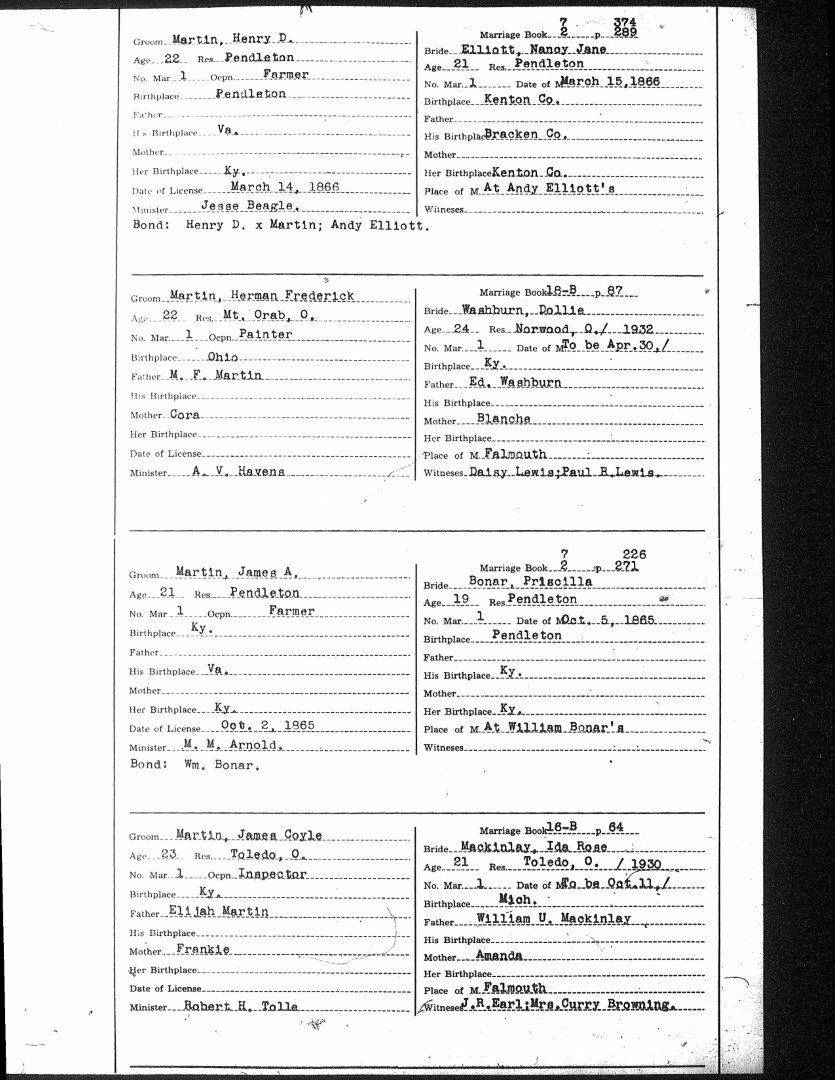 7 374
Marriage Book 2 p. 289
Groom Martin, Henry D.
Bride Elliott, Nancy Jane
Age 22 Res. Pendleton
Age 21 Res. Pendleton
No. Mar 1 Ocpn. Farmer
No. Mar. 1 Date of M. March 15, 1866
Birthplace Pendleton
Birthplace Kenton Co.
Father
Father
His Birthplace Va.
His Birthplace Bracken Co.
Mother
Mother
Her Birthplace Ky.
Her Birthplace Kenton Co.
Date of License March 14, 1866
Place of M. At Andy Elliott's
Minister Jesse Beagle.
Witneses
Bond: Henry D. x Martin; Andy Elliott.
Marriage Book 18-B p. 87
Groom Martin, Herman Frederick
Bride Washburn, Dollie
Age 22 Res. Mt. Orab, O.
Age 24 Res. Norwood, O./ 1932
No. Mar 1 Ocpn. Painter
No. Mar. 1 Date of M. To be Apr.30,/
Birthplace Ohio
Birthplace Ky.
Father M. F. Martin
Father Ed. Washburn
His Birthplace
His Birthplace
Mother Cora
Mother Blanche
Her Birthplace
Her Birthplace
Date of License
Place of M. Falmouth
Minister A. V. Havens
Witneses Daisy Lewis;Paul R.Lewis.
7 226
Marriage Book 2 p. 271
Groom Martin, James A.
Bride Bonar, Priscilla
Age 21 Res. Pendleton
Age 19 Res. Pendleton
No. Mar 1 Ocpn. Farmer
No. Mar. 1 Date of M. Oct. 5, 1865
Birthplace Ky.
Birthplace Pendleton
Father
Father
His Birthplace Va.
His Birthplace Ky.
Mother
Mother
Her Birthplace Ky.
Her Birthplace Ky.
Date of License Oct. 2, 1865
Place of M. At William Bonar's
Minister M. M. Arnold.
Witneses
Bond: Wm. Bonar.
Marriage Book 16-B p. 64
Groom Martin, James Coyle
Bride Mackinlay, Ida Rose
Age 23 Res. Toledo, O.
Age 21 Res. Toledo, O. / 1930
No. Mar 1 Ocpn. Inspector
No. Mar. 1 Date of M. To be Oct.11,/
Birthplace Ky.
Birthplace Mich.
Father Elijah Martin
Father William U. Mackinlay
His Birthplace
His Birthplace
Mother Frankie
Mother Amanda
Her Birthplace
Her Birthplace
Date of License
Place of M. Falmouth
Minister Robert H. Tolle
Witneses J.R.Earl;Mrs.Curry Browning.